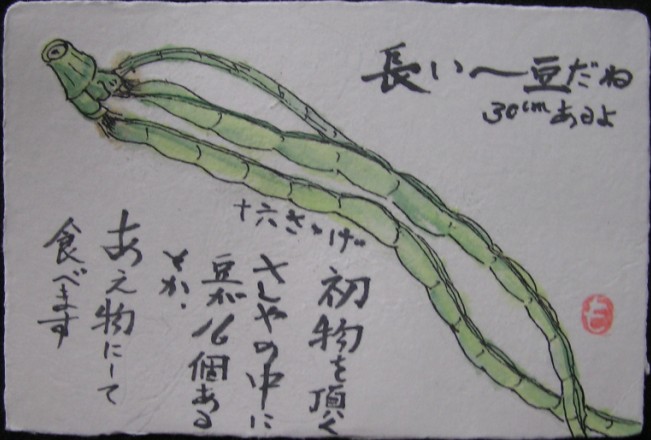 長い〜豆だね
30cmあるよ
十六ささげ
初物を頂く
さやの中に
豆が16個ある
とか.
あえ物にして
食べます